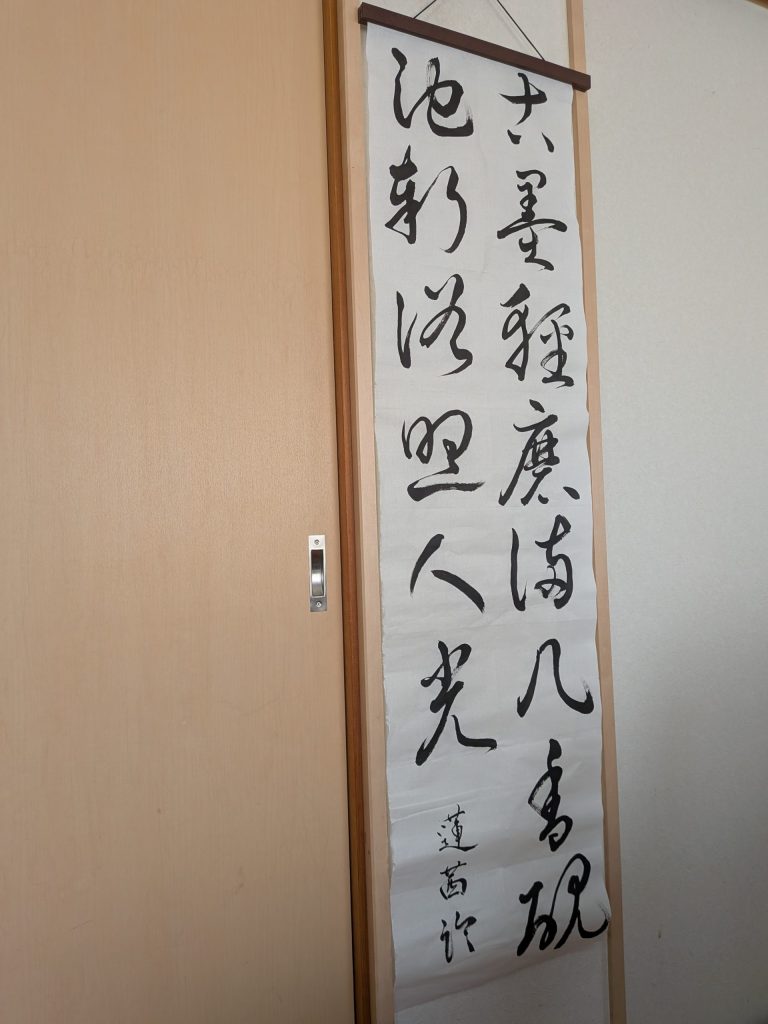 古墨輕磨滿几香硯
池新浴照人光
蓮茜